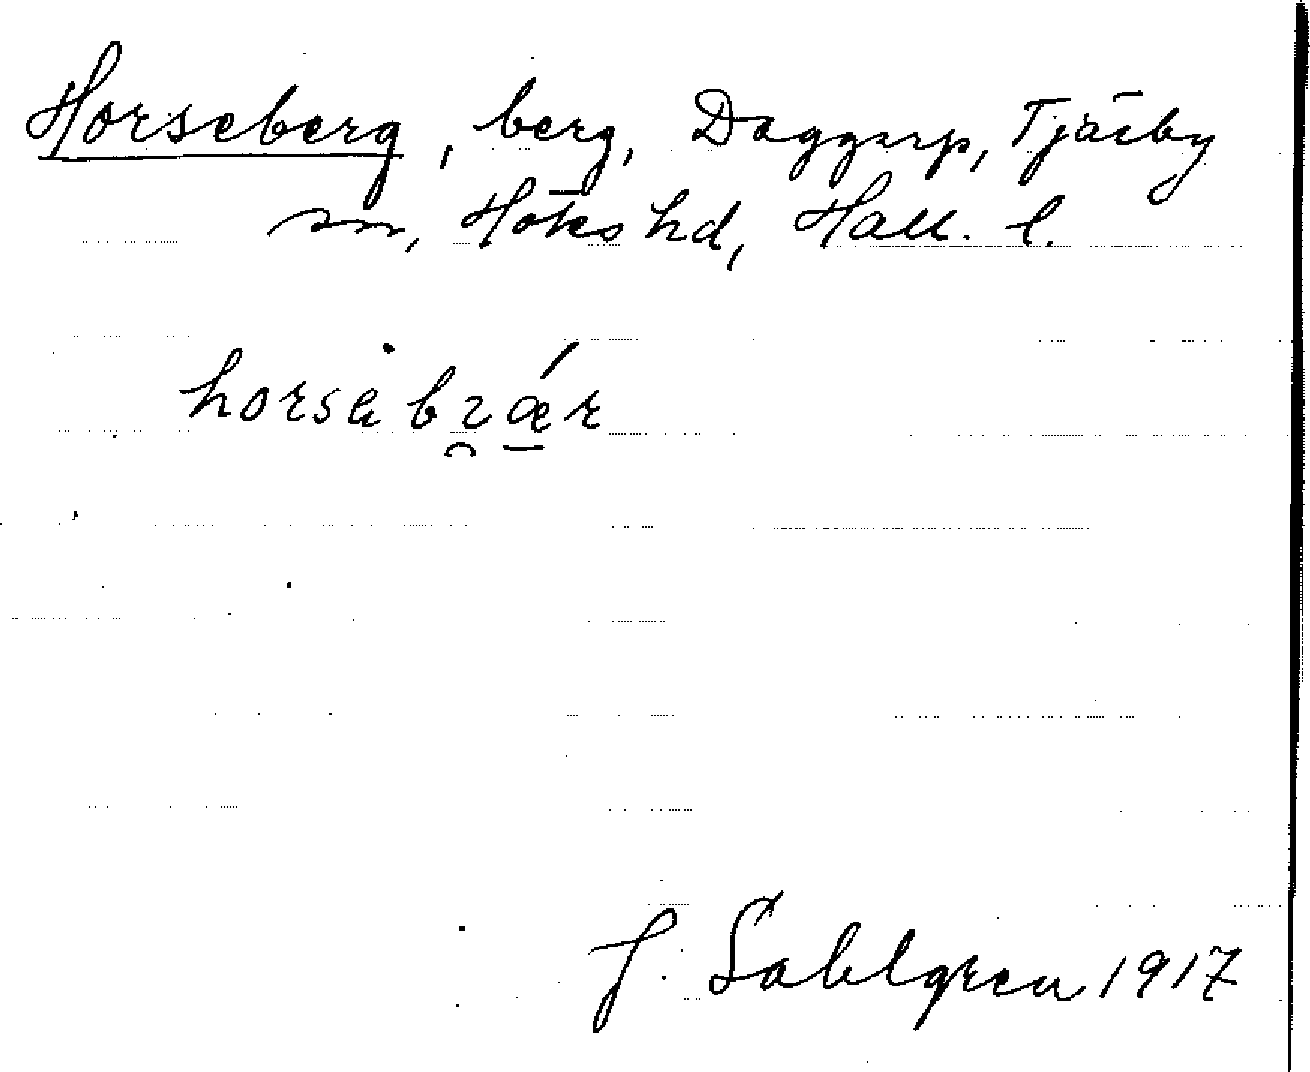 Horseberg, berg, Daggarp, Tjärby
sn, Höks hd, Hall. l.
J. Sahlgren 1917